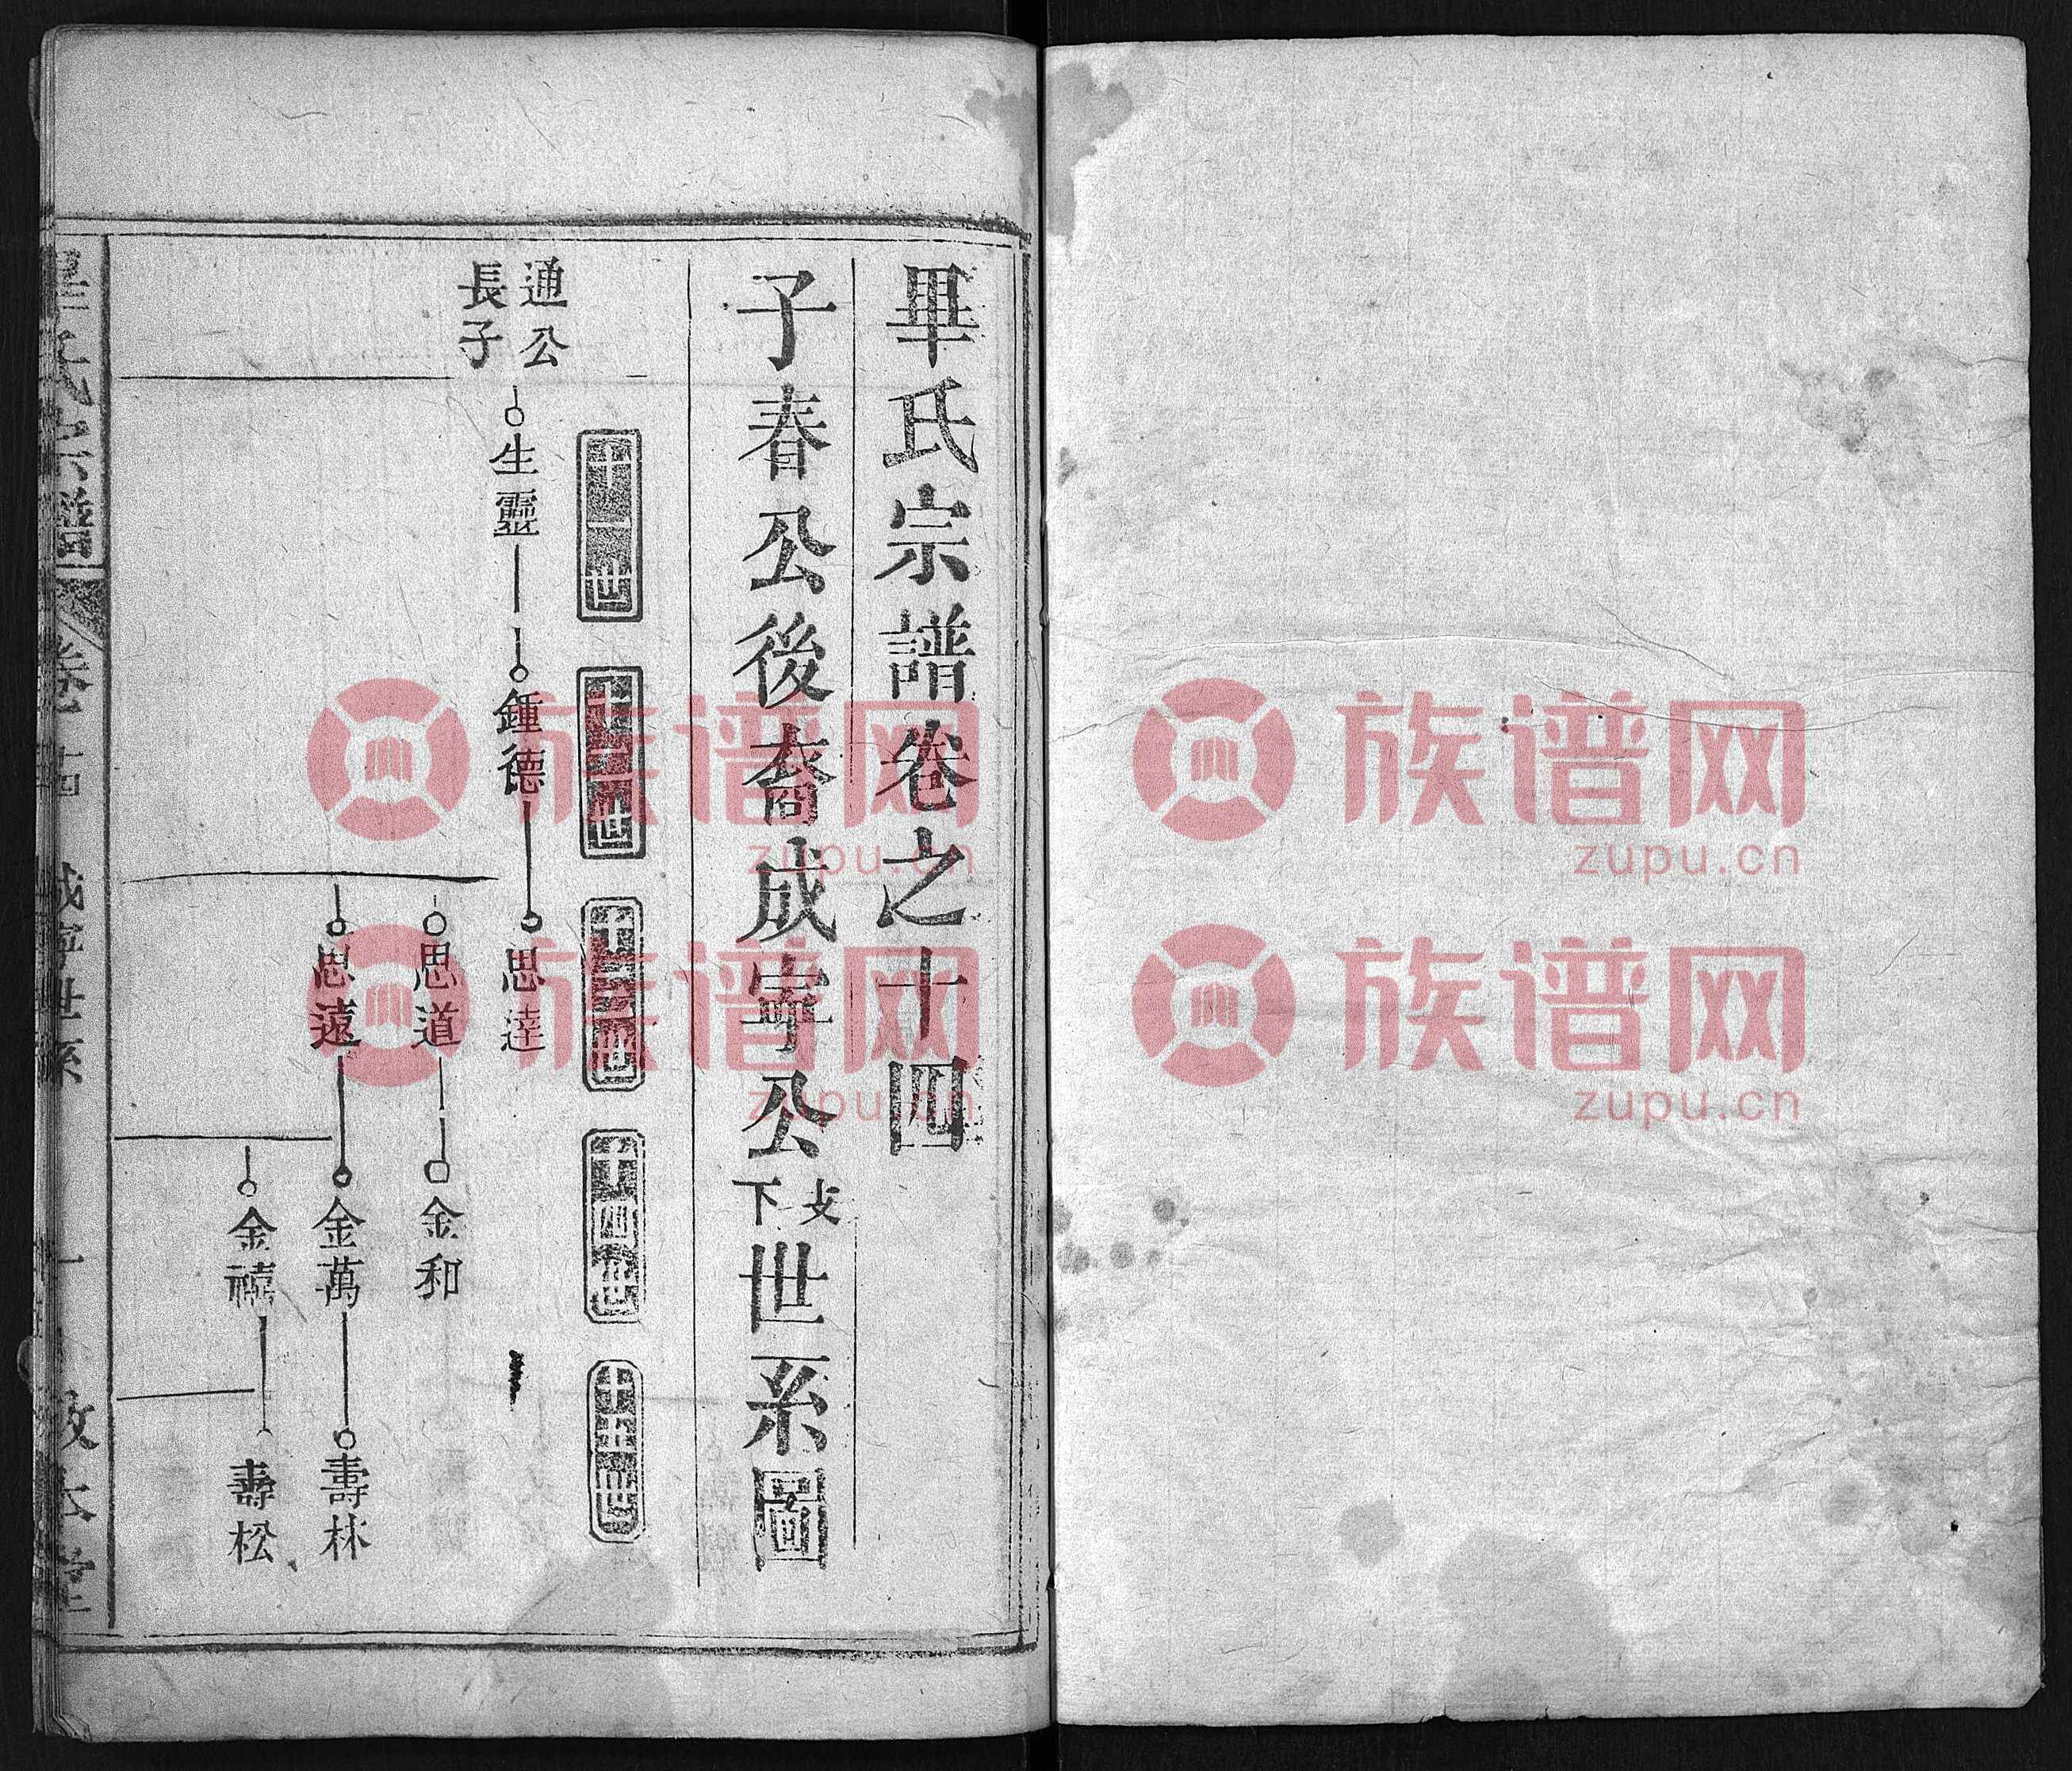 畢氏宗譜卷之十四
子春公後裔成寧公支下世系圖
十一世
十二世
十三世
十四世
十五世
通公長子
生靈
鍾德
思達
思道
金和
思遠
金萬
壽林
金禧
壽松
畢氏宗譜
卷十四
成寧世系
一
敦本堂
族谱网
zupu.cn
族谱网
zupu.cn
族谱网
zupu.cn
族谱网
zupu.cn